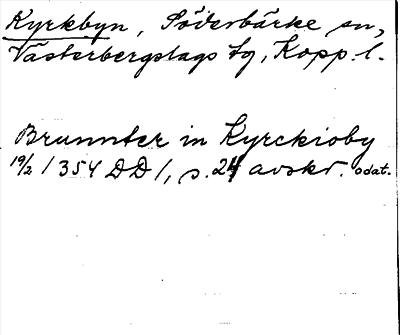 Kyrkbyn, Söderbärke sn,
Västerbergslags tg, Kopp. l.
Brunnter in Kyrckioby
19/2 1354 DD 1, s. 24 avskr. odat.